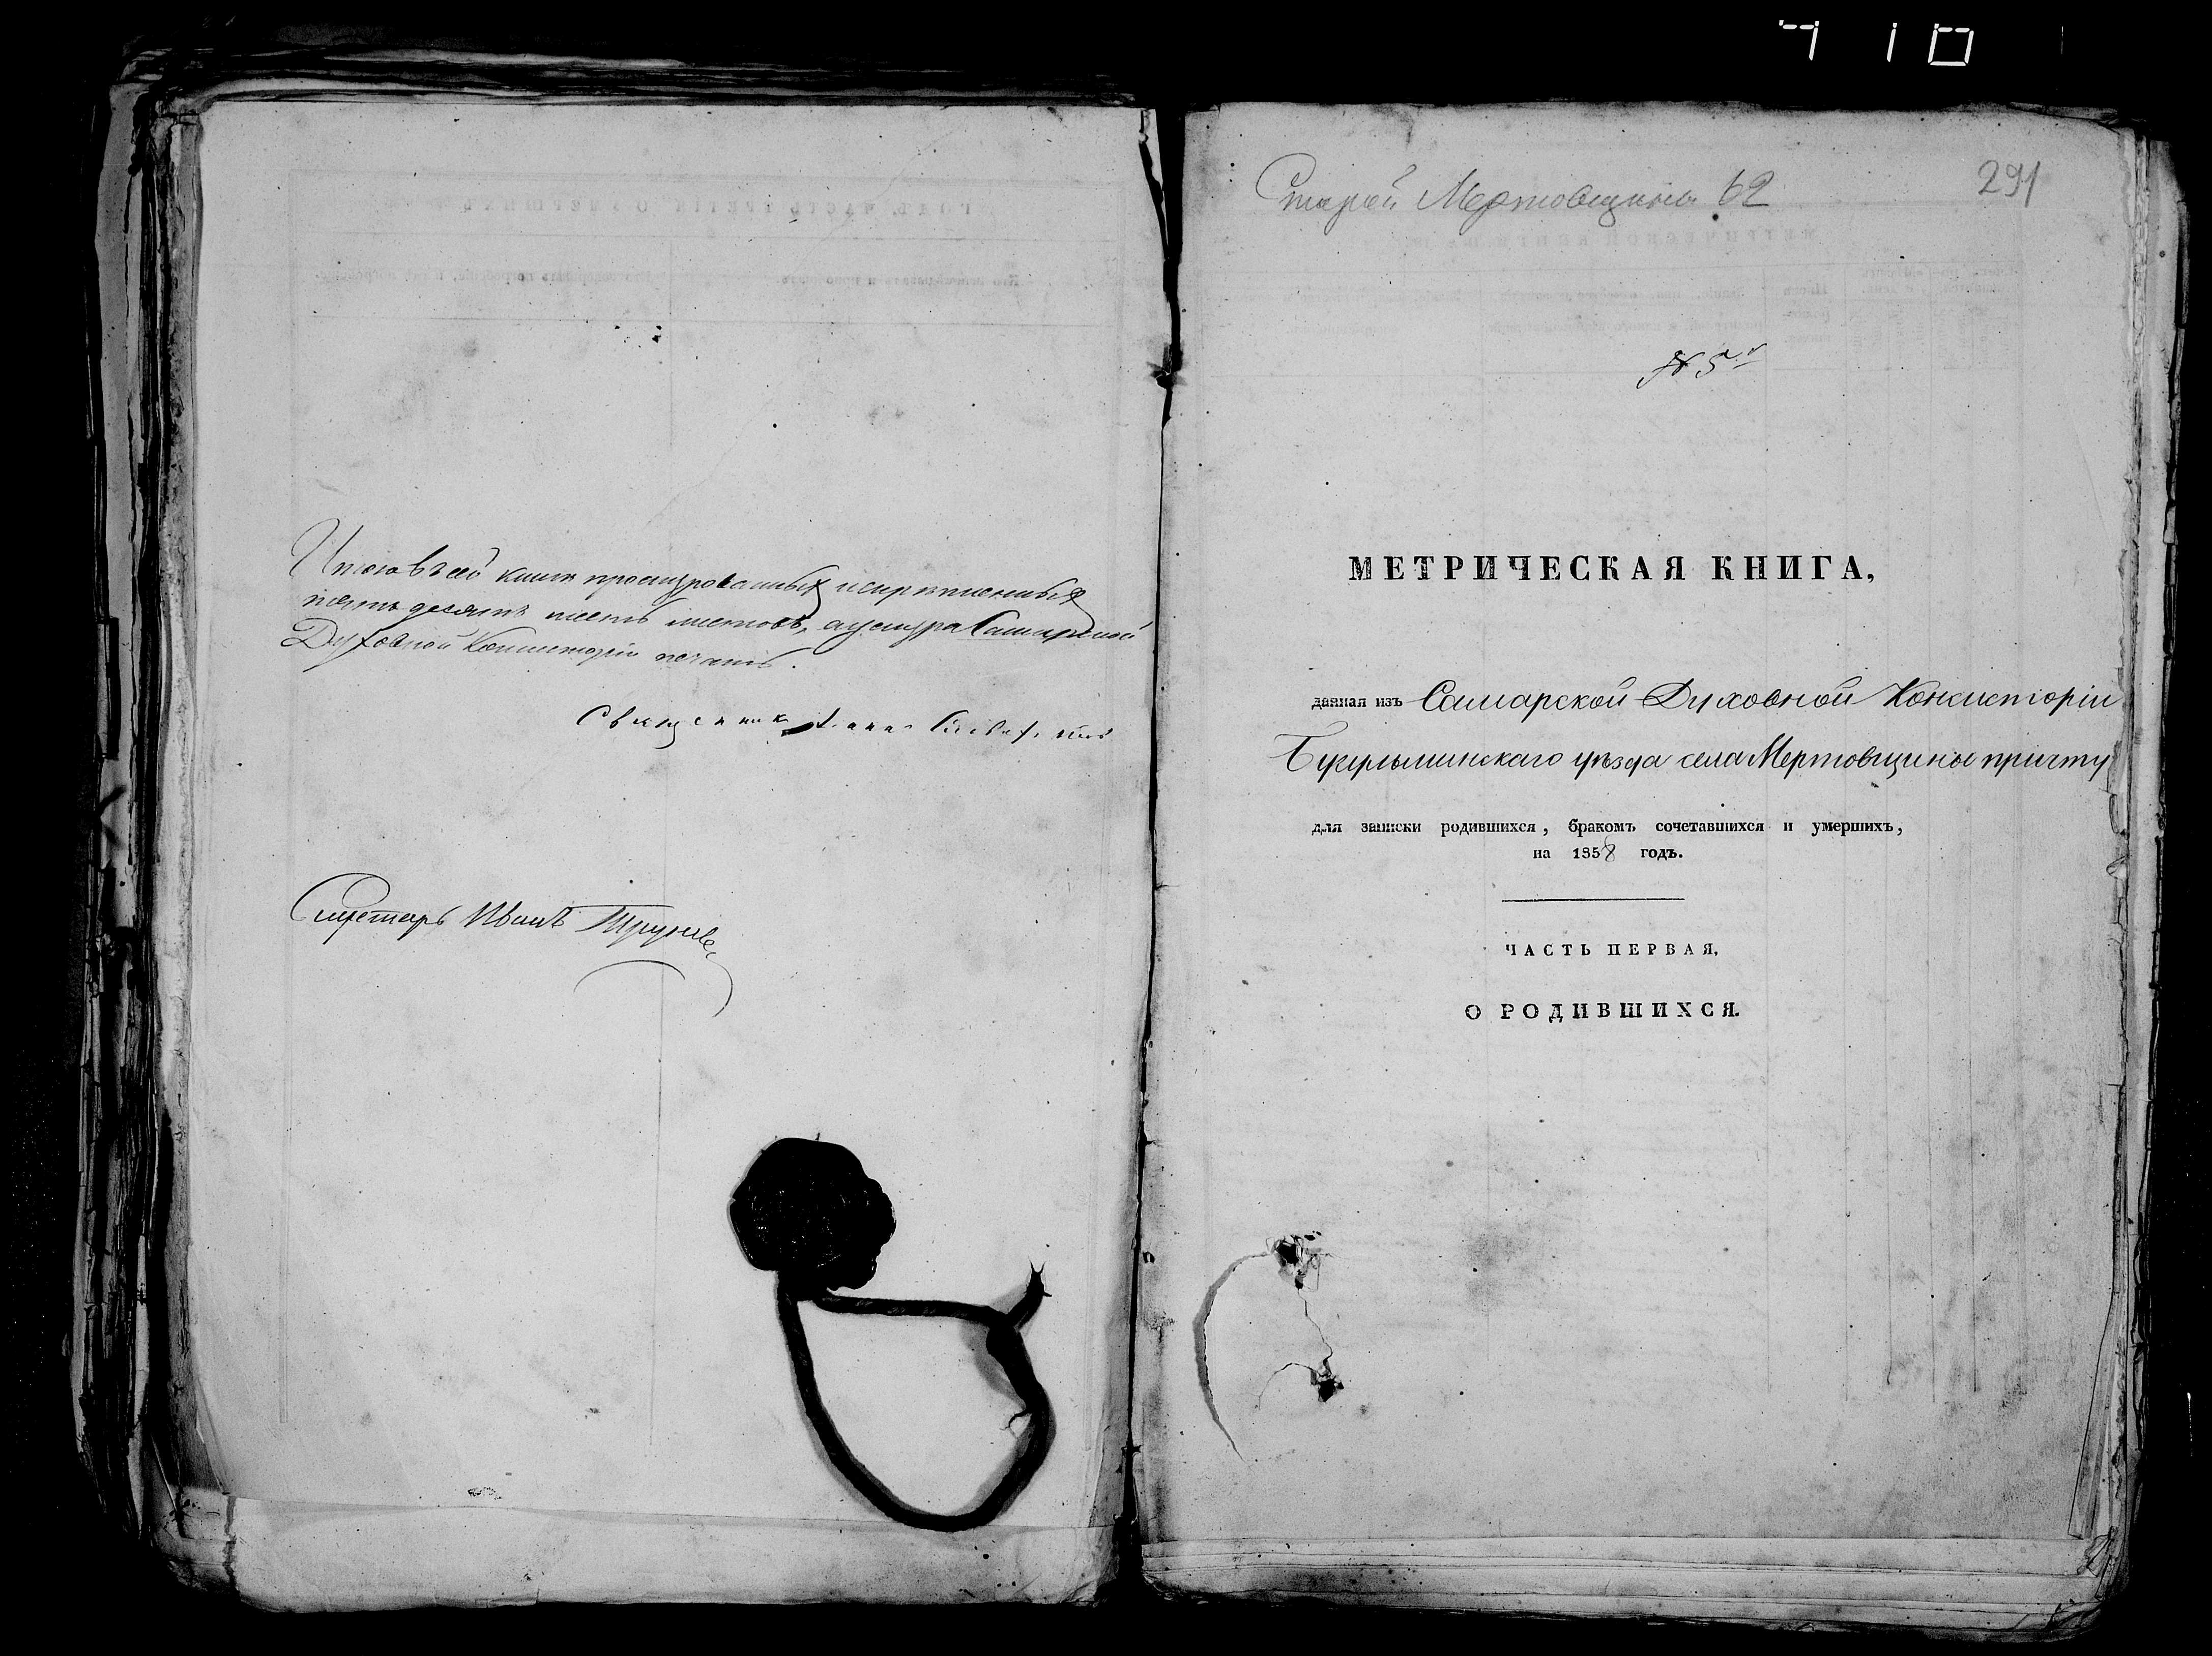 Итого въ сей книге прошнурованныхъ и скрѣпленныхъ
пятьдесятъ шесть листовъ, а у шнура Самарской
Духовной Консисторіи печать.
Священникъ
Секретарь Иванъ
710
291
Старой Мертовщины 62
№ 5
МЕТРИЧЕСКАЯ КНИГА,
данная изъ Самарской Духовной Консисторіи
Бугульминскаго уѣзда села Мертовщины причту
для записки родившихся, бракомъ сочетавшихся и умершихъ,
на 1858 годъ.
ЧАСТЬ ПЕРВАЯ,
О РОДИВШИХСЯ.